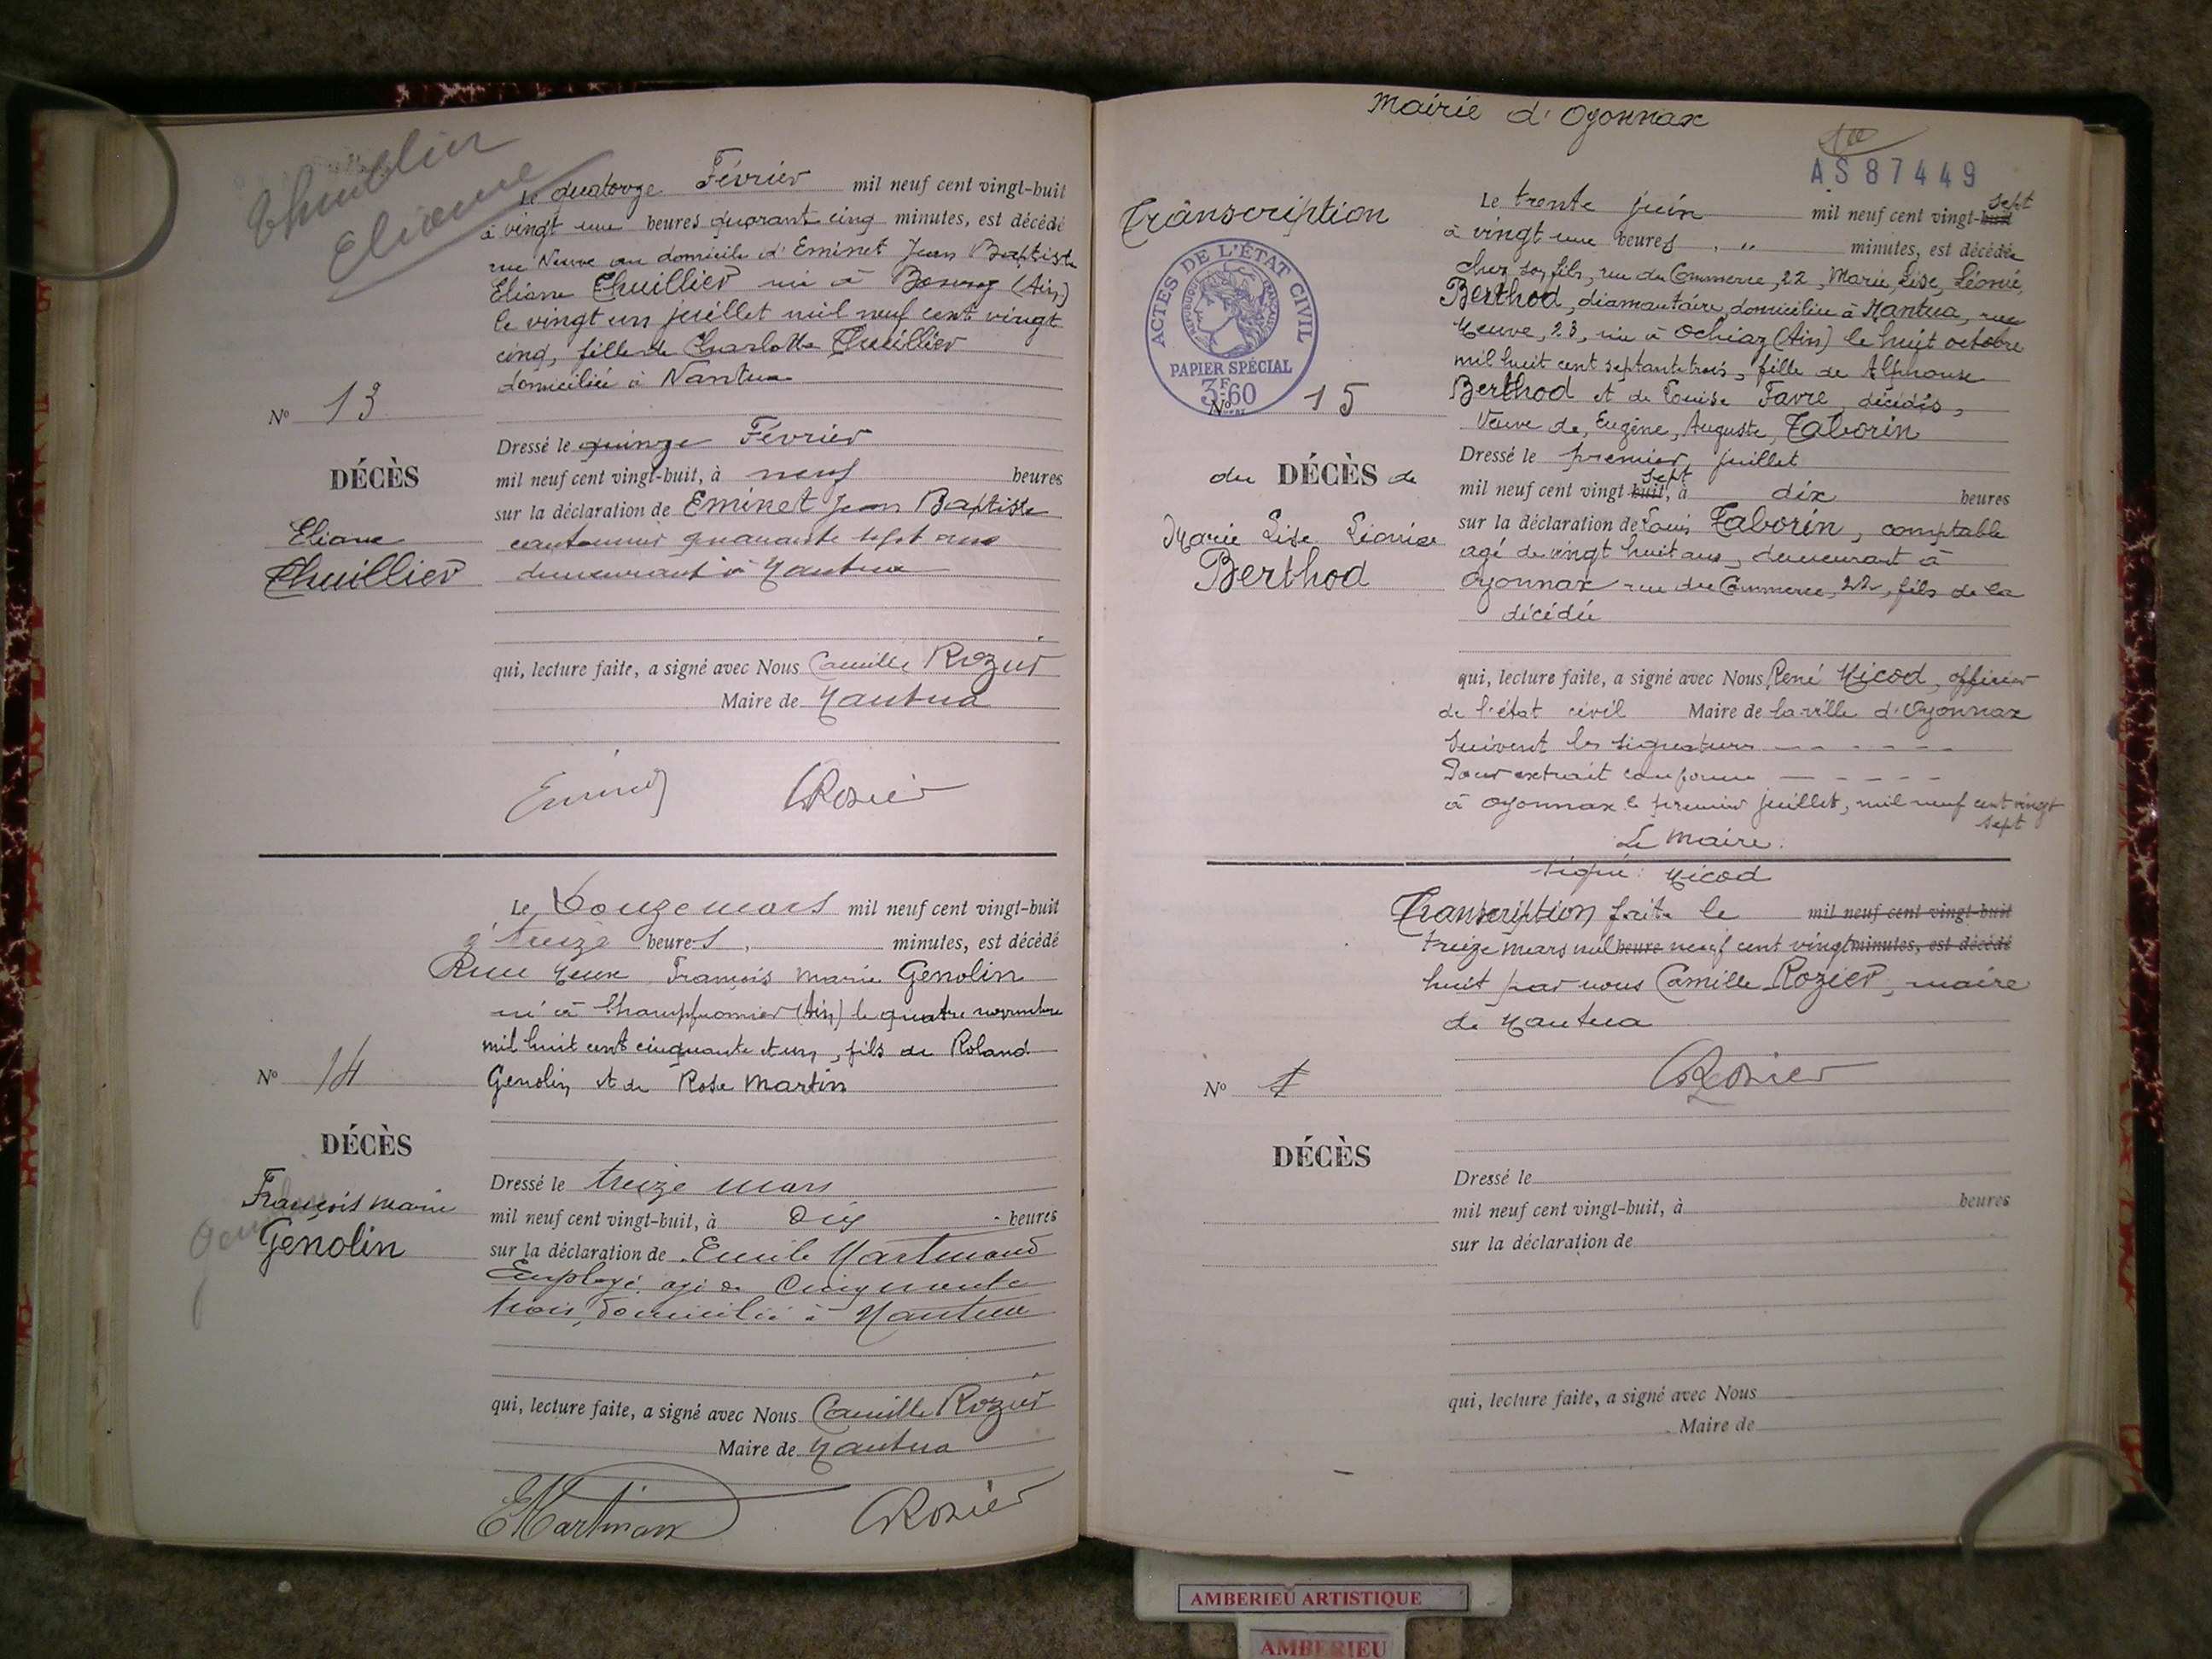 Thuillier
Eliane
Le quatorze Février mil neuf cent vingt-huit
à vingt une heures quarant cinq minutes, est décédé
rue Neuve au domicile d'Eminet Jean Baptiste
Eliane Thuillier née à Bourg (Ain)
le vingt un juillet mil neuf cent vingt
cinq, fille de Charlotte Thuillier
domiciliée à Nantua
N° 13
DÉCÈS
Eliane
Thuillier
Dressé le quinze Février
mil neuf cent vingt-huit, à neuf heures
sur la déclaration de Eminet Jean Baptiste
cantonnier quarante sept ans
demeurant à Nantua
qui, lecture faite, a signé avec Nous Camille Rozier
Maire de Nantua
Eminet CRozier
Le Douze mars mil neuf cent vingt-huit
à treize heures, minutes, est décédé
Rue Neuve François Marie Genolin
né à Champfromier (Ain) le quatre novembre
mil huit cent cinquante et un, fils de Roland
Genolin et de Rose Martin
N° 14
DÉCÈS
François Marie
Genolin
Dressé le treize mars
mil neuf cent vingt-huit, à Dix heures
sur la déclaration de Emile Hartmand
Employé agé de Cinquante
trois, domicilié à Nantua
qui, lecture faite, a signé avec Nous Camille Rozier
Maire de Nantua
EHartmann CRozier
Mairie d'Oyonnax
AS 87449
Transcription
ACTES DE L'ÉTAT CIVIL
RÉPUBLIQUE FRANÇAISE
PAPIER SPÉCIAL
3F60
N° 15
du DÉCÈS de
Marie Lise Léonise
Berthod
Le trente juin mil neuf cent vingt-huit sept
à vingt une heures, " minutes, est décédée
chez son fils, rue du Commerce, 22, Marie, Lise, Léonie,
Berthod, diamantaire, domiciliée à Nantua, rue
Neuve, 23, née à Ochiaz (Ain) le huit octobre
mil huit cent septante trois, fille de Alphonse
Berthod et de Louise Favre, décédés,
Veuve de, Eugène, Auguste, Taborin
Dressé le premier juillet
mil neuf cent vingt huit sept, à dix heures
sur la déclaration de Louis Taborin, comptable
agé de vingt huit ans, demeurant à
Oyonnax rue du Commerce, 22, fils de la
décédée
qui, lecture faite, a signé avec Nous René Nicod, officier
de l'état civil Maire de la ville d'Oyonnax
Suivent les signatures - - - - - -
Pour extrait conforme - - - - -
à Oyonnax le premier juillet, mil neuf cent vingt
sept
Le Maire:
Signé: Nicod
Transcription faite le mil neuf cent vingt-huit
treize mars mil heure neuf cent vingt minutes, est décédé
huit par nous Camille Rozier, maire
de Nantua
CRozier
N°
DÉCÈS
Dressé le
mil neuf cent vingt-huit, à heures
sur la déclaration de
qui, lecture faite, a signé avec Nous
Maire de
AMBERIEU ARTISTIQUE
AMBERIEU